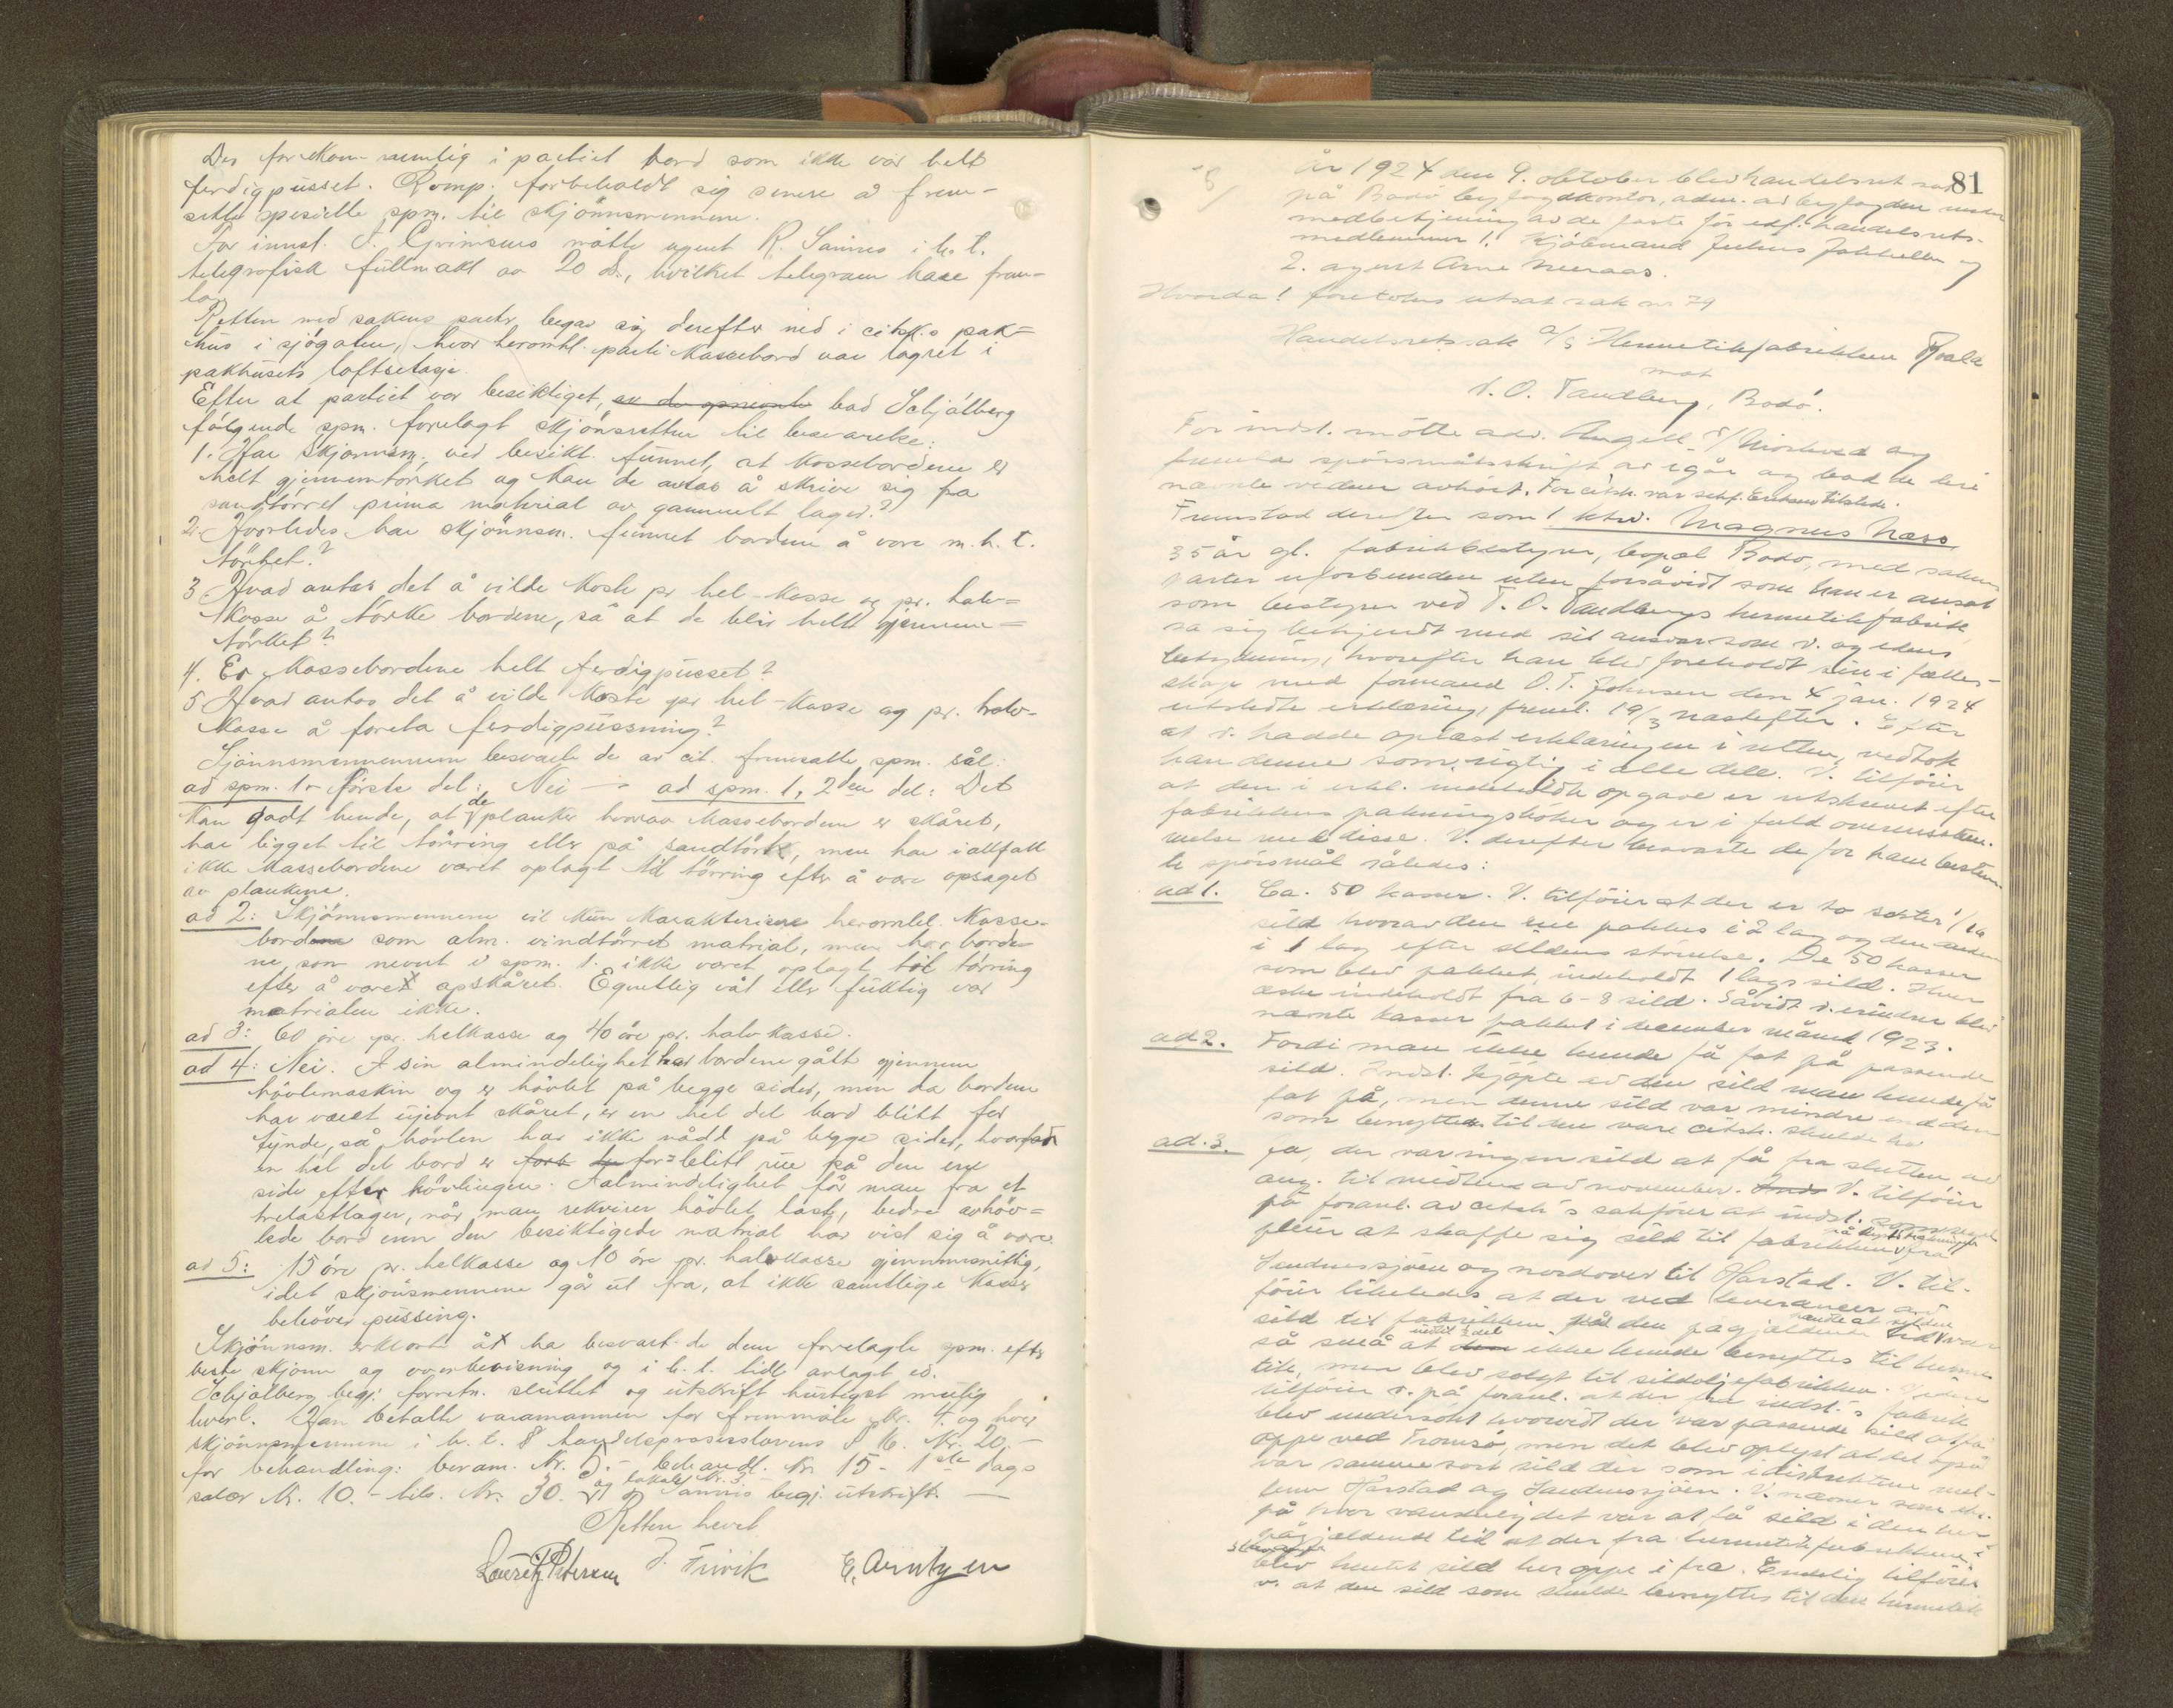 Der forekom nemlig i partiet bord som ikke var helt
ferdigpusset. Komp. forbeholdt sig senere å frem-
sette spesielle spm. til skjönnsmennene.
For innst. J. Grimsmo mötte agent R. Sannes i h. t.
telegrafisk fullmakt av 20 ds., hvilket telegram han frem-
la.
Retten med sakens parter begav sig derefter ned i citsk.s pak-
hus i sjögaten, hvor heromhl. parti kassebord var lagret i
pakhusets loftsetasje.
Efter at partiet var besiktiget, bad Schjålberg
fölgende spm. forelagt skjönsretten til besvarelse:
1. Har skjønnsm. ved besikt. funnet, at kassebordene er
helt gjennemtörket og kan de antas å skrive sig fra
sandtörret prima matrial av gammelt lager?
2. Hvorledes har skjönnsm. funnet bordene å være m. h. t.
törhet?
3 Hvad antas det å vilde koste pr hel-kasse og pr. halv-
kasse å törke bordene, så at de blir helt gjennem-
törket?
4. Er kassebordene helt ferdigpusset?
5 Hvad antas det å vilde koste pr hel-kasse og pr. halv-
kasse å foreta ferdigpussning?
Sjönnsmennennene besvarte de av cit. fremsatte spm. sål:
ad spm. 1 – förste del: Nei — ad spm. 1, 2den del: Det
kan godt hende, at de planker hvorav kassebordene er skåret,
har ligget til törring eller på sandtörk, men har iallfall
ikke kassebordene været oplagt til törring efter å være opsaget
av plankene.
ad 2: Skjönnsmennene vil kun karakterisere heromhl. kasse-
bordene som alm. vindtörret matrial, men har borde-
ne, som nevnt i spm. 1. ikke været oplagt til törring
efter å være opskåret. Egentlig våt eller fuktig var
matrialen ikke.
ad 3: 60 öre pr. helkasse og 40 öre pr. halvkasse.
ad 4: Nei. I sin almindelighet har bordene gått gjennem
hövlemaskin og er hövlet på begge sider, men da bordene
har været ujevnt skåret, er en hel del bord blitt for
tynde, så hövlen har ikke nådd på begge sider, hvorfor
en hel del bord er forblitt rue på den ene
side efter hövlingen. I almindelighet får man fra et
trelastlager, når man rekvirer hövlet last, bedre avhöv-
lede bord enn den besiktigede matrial har vist sig å være.
ad 5: 15 öre pr. helkasse og 10 öre pr. halvkasse gjennemsnitlig,
idet skjönsmennene går ut fra, at ikke samtlige kasser
behöver pussing.
Skjönnsm. erklærte at ha besvart de dem forelagte spm. efter
beste skjönn og overbevisning og i h. t. tidl. avlagt ed.
Schjålberg begj. forretn. sluttet og utskrift hurtigst mulig
hverl. Han betalte varamannen for fremmöte kr. 4. og hver
skjönnsmennene i h. t. § handelsprosesslovens § 16. kr. 20.-
for behandling: beram. kr. 5.- behandl. kr 15 - 1ste dags
salær kr. 10.- tils. kr. 30. og lokale kr. 3 - Sannes begj. utskrift. —
Retten hevet
Lauritz Petersen J. Trivik E. Arntzen
81
År 1924 den 9. oktober blev handelsret sat
på Bodö byfogdkontor, adm. av byfogden under
medbetjening av de faste för edf. handelsrets-
medlemmer 1. Kjöbmand Julius Jakhelln og
2. agent Arne Meeraas.
Hvorda! foretokes utsat sak nr 74
Handelsretssak A/S Hermetikfabrikken Roald
mot
T. O. Tandberg, Bodö.
For indst. mötte adv. Angell v/ og
fremla spörsmålsskrift av igår og bad de deri
nævnte vidner avhört. For citsk. var sakf. Eriksen tilstede.
Fremstod derefter som 1. ktv. Magnus Næss
35 år gl. fabrikbestyrer, bopæl Bodö, med sakens
parter uforbunden uten forsåvidt som han er ansat
som bestyrer ved T. O. Tandbergs hermetikfabrik,
sa sig bekjendt med sit ansvar som v. og edens
betydning, hvorefter han blev foreholdt sin i fælles-
skap med formand O. T. Johnsen den 4 jan. 1924
utstedte erklæring, freml. 19/3 næstefter. Efter
at v. hadde oplæst erklæringen i retten, vedtok
han denne som rigtig i alle dele. V. tilföier
at den i erkl. indeholdte opgave er utskrevet efter
fabrikkens pakningsböker og er i fuld overensstem-
melse med disse. V. derefter besvarte de for ham bestem-
te spörsmål således:
ad 1. Ca. 50 kasser. V. tilföier at der er to sorter 1/10
sild hvorav den ene pakkes i 2 lag og den anden
i 1 lag efter sildens störrelse. De 50 kasser
som blev pakket, indeholdt 1 lags sild. Hver
æske indeholdt fra 6-8 sild. Såvidt v. erindrer blev
nævnte kasser pakket i december måned 1923.
ad 2. Fordi man ikke kunde få fat på passende
sild. Indst. kjöpte av den sild man kunde få
fat på, men denne sild var mindre end den
som benyttes til den vare citsk. skulde ha
ad. 3. Ja, der var ingen sild at få fra slutten av
aug. til midten av november. V. tilföier
på foranl. av citsk's sakförer at indst.
pleier at skaffe sig sild til fabrikken fra
Sandnessjöen og nordover til Harstad. V. til-
föier likeledes at der ved leverancer av
sild til fabrikken på den pågjældende tid hændte at silden var
så små at indtil ½ del ikke kunde benyttes til herme-
tik, men blev solgt til sildoljefabrikken. Videre
tilföier v. på foranl. at der fra indst.'s fabrik
blev undersökt hvorvidt der var passende sild at få
oppe ved Tromsö, men det blev oplyst at det også
var samme sort sild der som i distriktene mel-
lem Harstad og Sandnessjöen. V. nævner som eks.
på hvor vanskelig det var at få sild i den her
pågjældende tid at der fra hermetikfabrikken i
blev hentet sild her oppe i fra. Endelig tilföier
v. at den sild som skulde benyttes til den hermetik